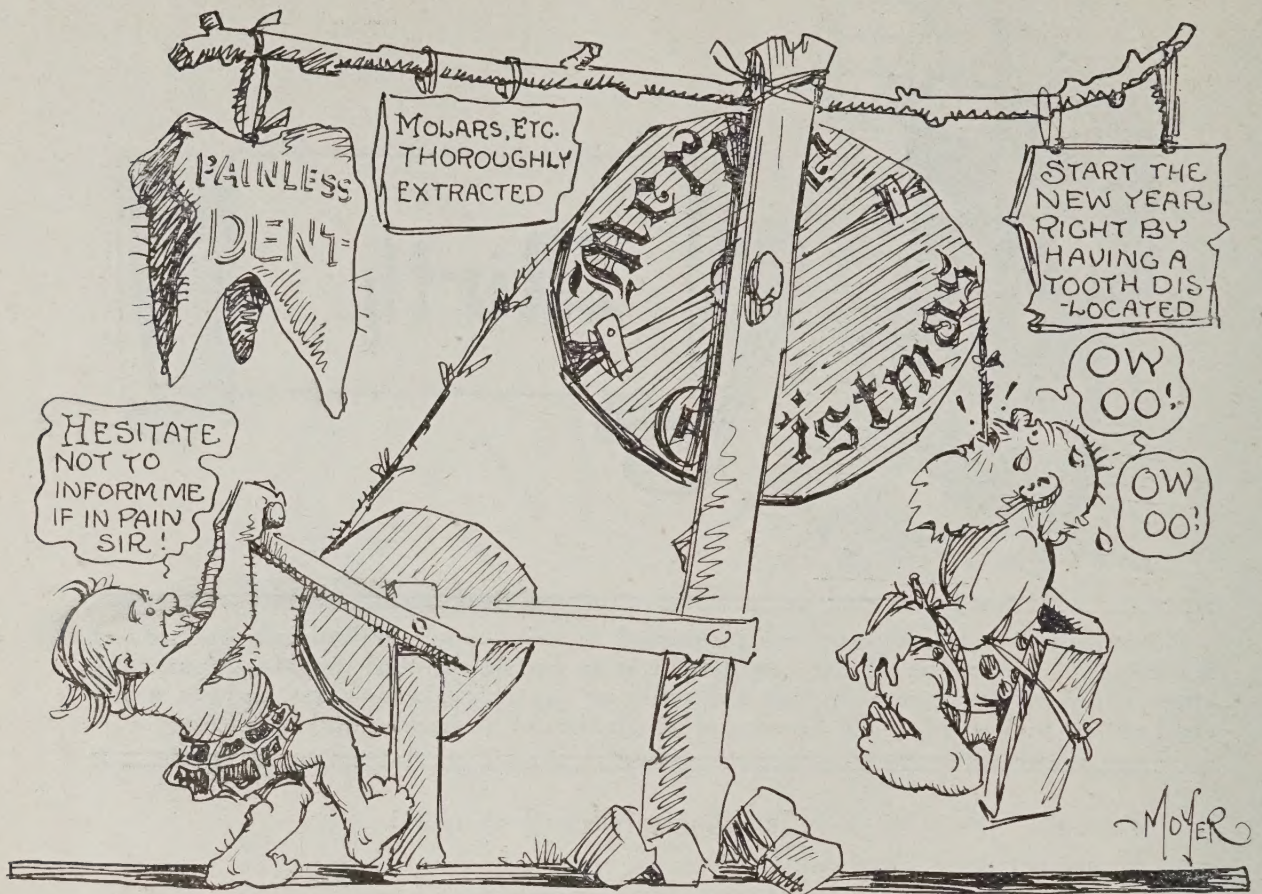 PAINLESS
DENT-
MOLARS, ETC.
THOROUGHLY
EXTRACTED
Merry
Christmas
START THE
NEW YEAR
RIGHT BY
HAVING A
TOOTH DIS-
-LOCATED
HESITATE
NOT TO
INFORM ME
IF IN PAIN
SIR!
OW
OO!
OW
OO!
MOYER